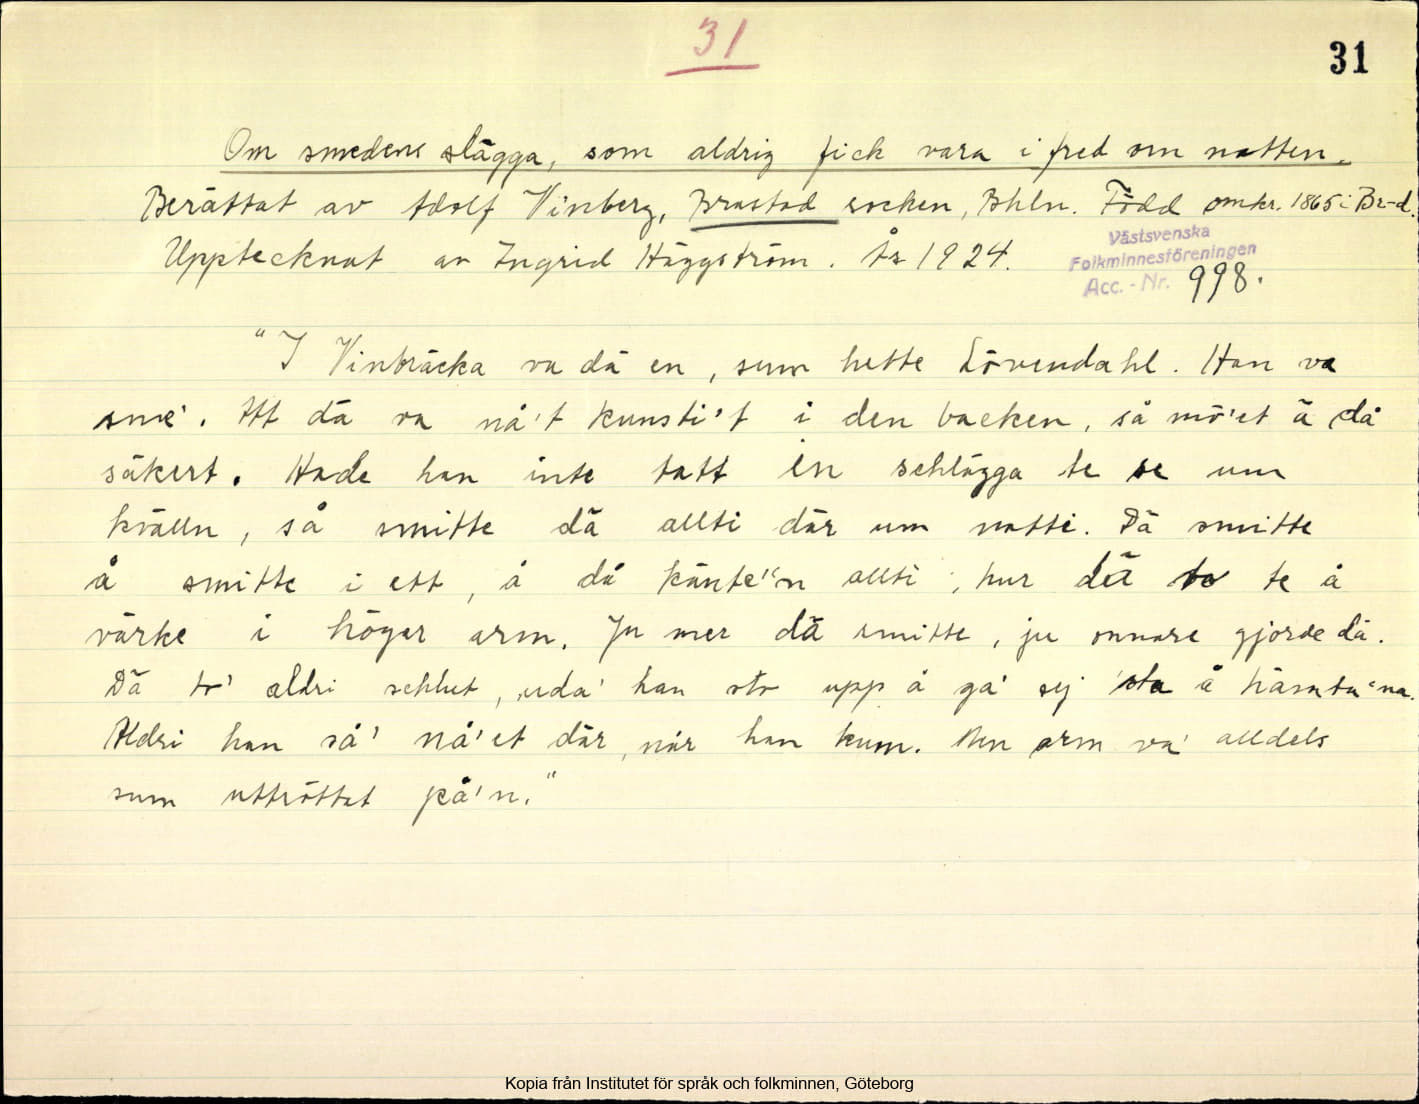 31
31
Om smedens slägga, som aldrig fick vara i fred om natten.
Berättat av Adolf Vinberg, Brastad socken, Bhln. Född omkr. 1865 i Br-d.
Upptecknat av Ingrid Häggström. År 1924.
Västsvenska
Folkminnesföreningen
Acc. - Nr. 998.
"I Vinbräcka va dä en, sum hette Lövendahl. Han va
sme'. Att dä va nå't kunsti't i den backen, så mö'et ä då
säkert. Hade han inte tatt in schlägga te se um
kvälln, så smitte dä allti där um natti. Dä smitte
å smitte i ett, å då känte"n allti, hur dä to te å
värke i höger arm. Ju mer dä smitte, ju onnare gjorde dä.
Dä to' aldri schlut, uda' han sto upp å ga' sej sta å hämta"na.
Aldri han så' nå'et där, när han kum. Men arm va' alldels
sum uttröttat på'n."
Kopia från Institutet för språk och folkminnen, Göteborg